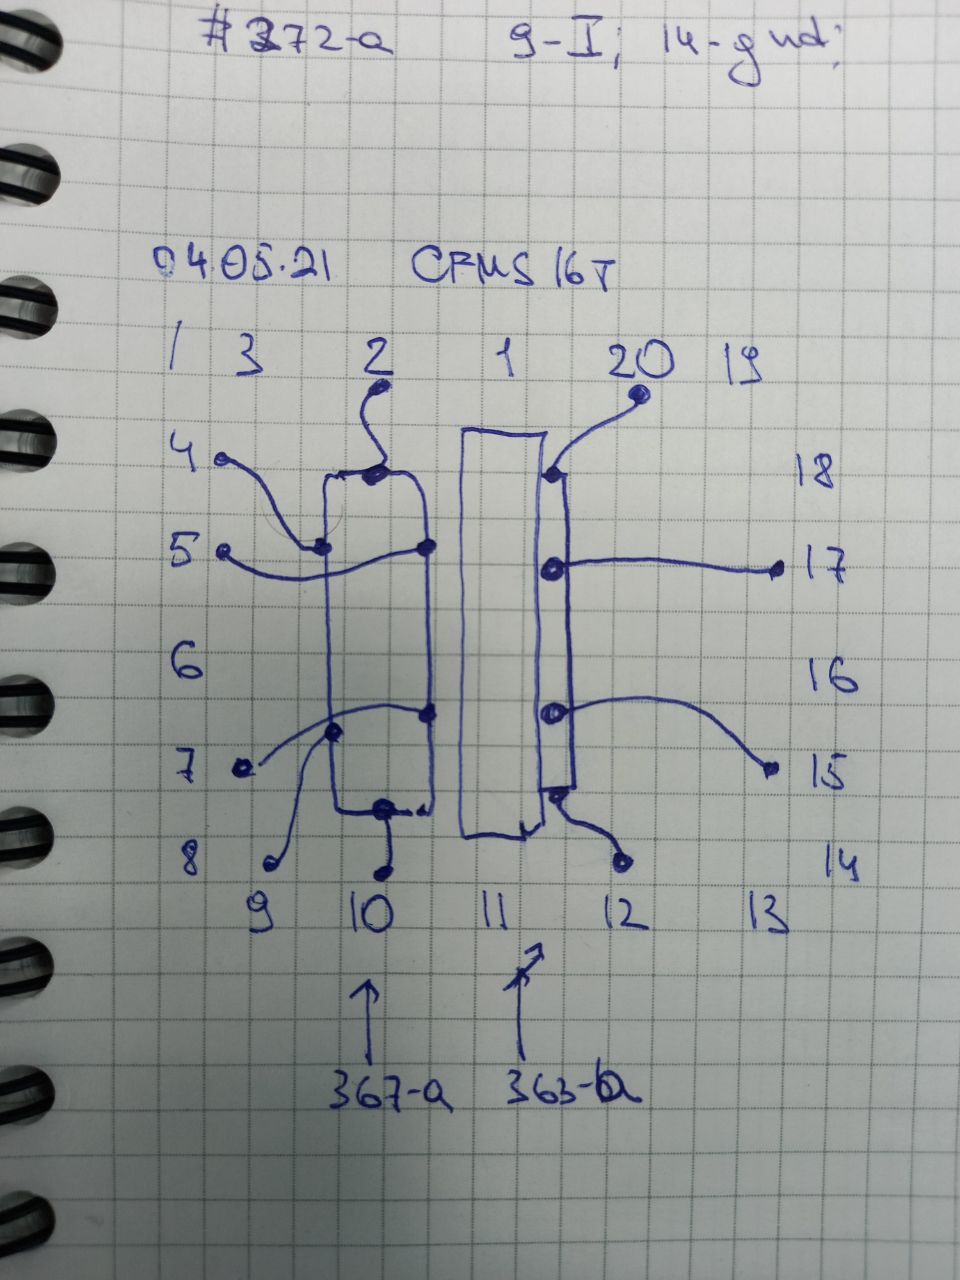 #372-a 9-I; 14-gnd;
04.05.21 CFMS 16T
/ 3 2 1 20 19
4 18
5 17
6 16
7 15
8 14
9 10 11 12 13
367-a 363-a